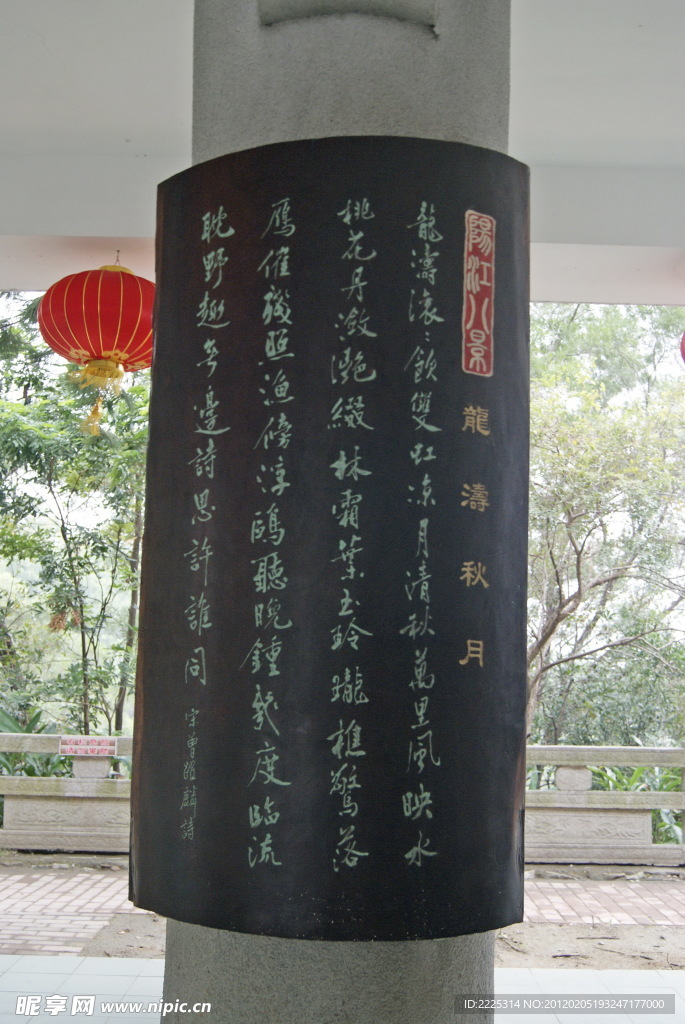 陽江八景
龍濤秋月
龍濤滾〻飲雙虹涼月清秋萬里風映水
桃花丹潋灧綴林霜葉玉玲瓏樵驚落
鴈催殘照漁傍浮鷗聽晚鍾幾度臨流
耽野趣無邊詩思許誰同
宋曾 麟詩
昵享网 www.nipic.cn
ID:2225314 NO:20120205193247177000